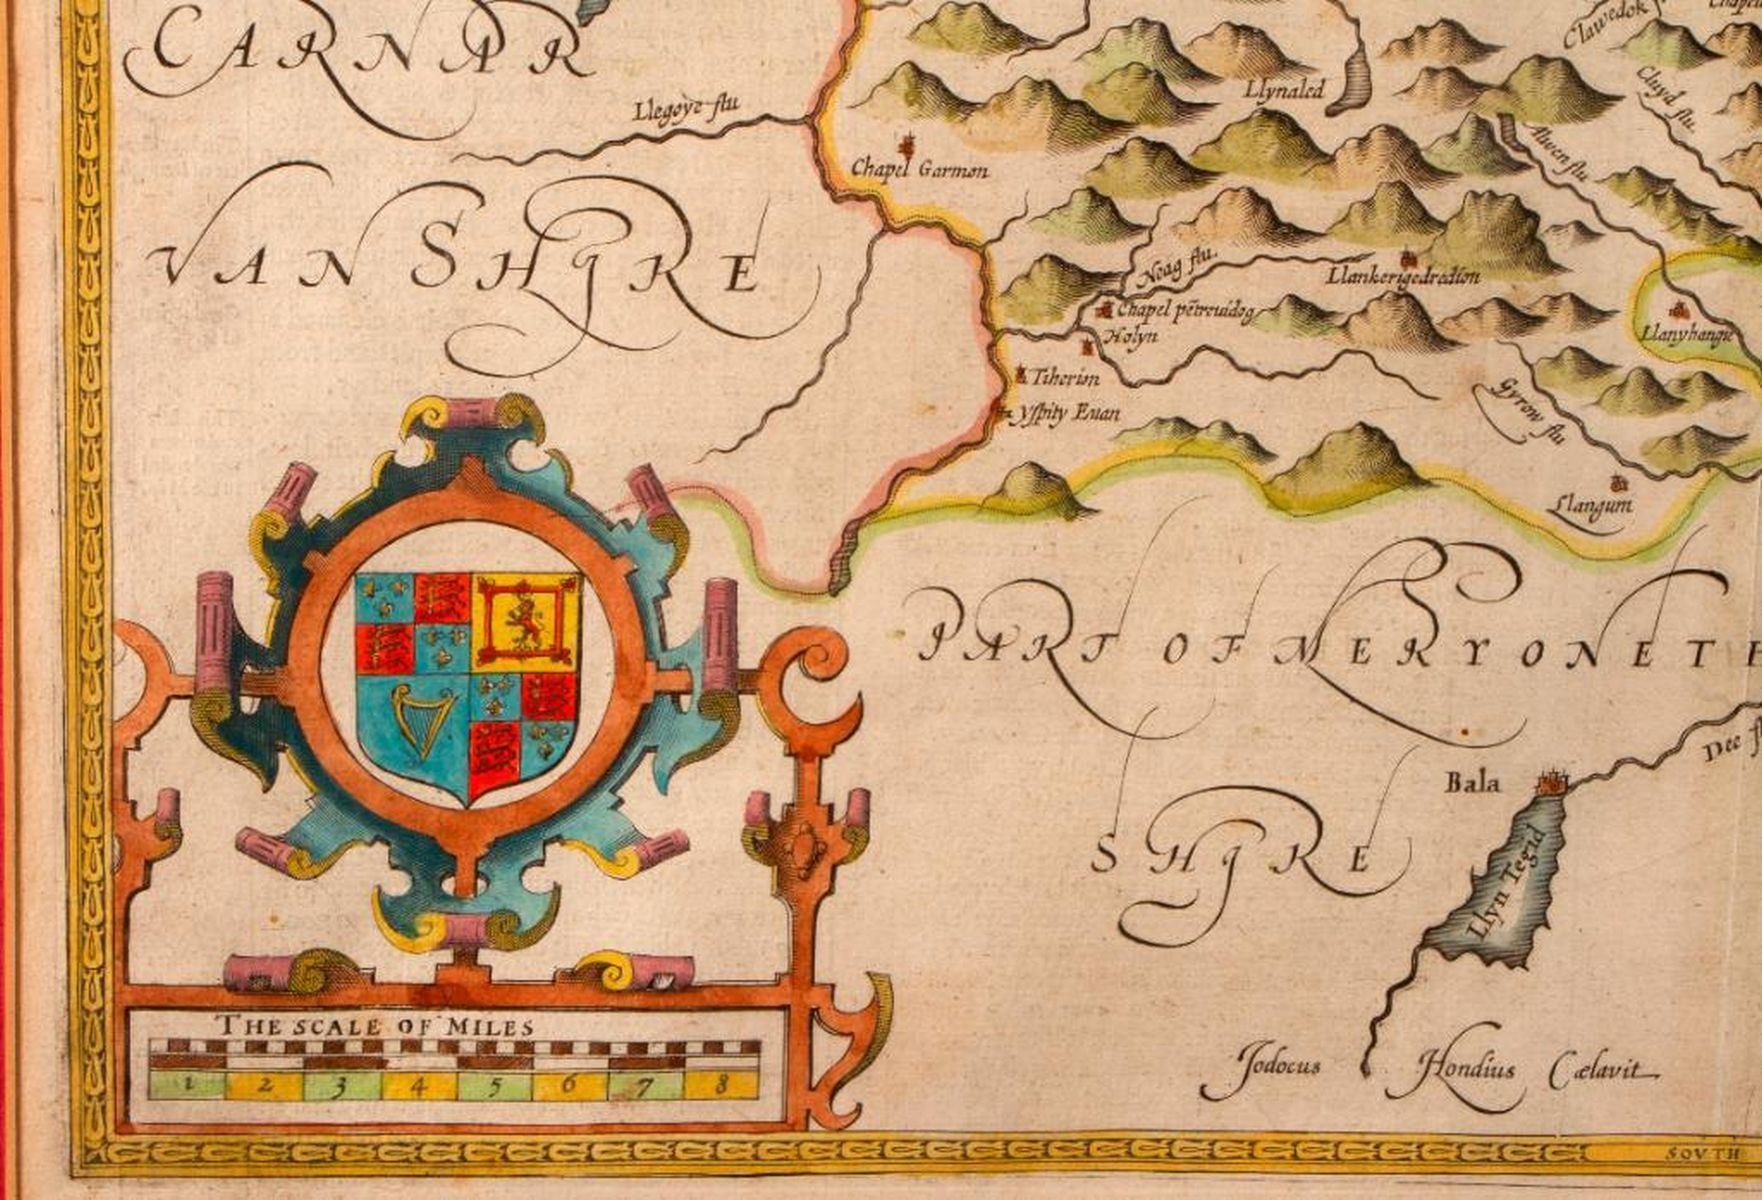 CARNAR
VAN SHJRE
Llegoye flu
Chapel Garmon
Llynaled
Clawedok
Cluyd flu.
Alwen flu
Neag flu.
Llankerigedredion
Chapel pẽtrevidog
Holyn
Tiherion
Yspity Euan
Llanyhangle
Gyrow flu
Llangum
PART OF MERYONETH
SHJRE
Bala
Dee fl
Llyn Tegid
THE SCALE OF MILES
1 2 3 4 5 6 7 8
Jodocus Hondius Cælavit
SOVTH